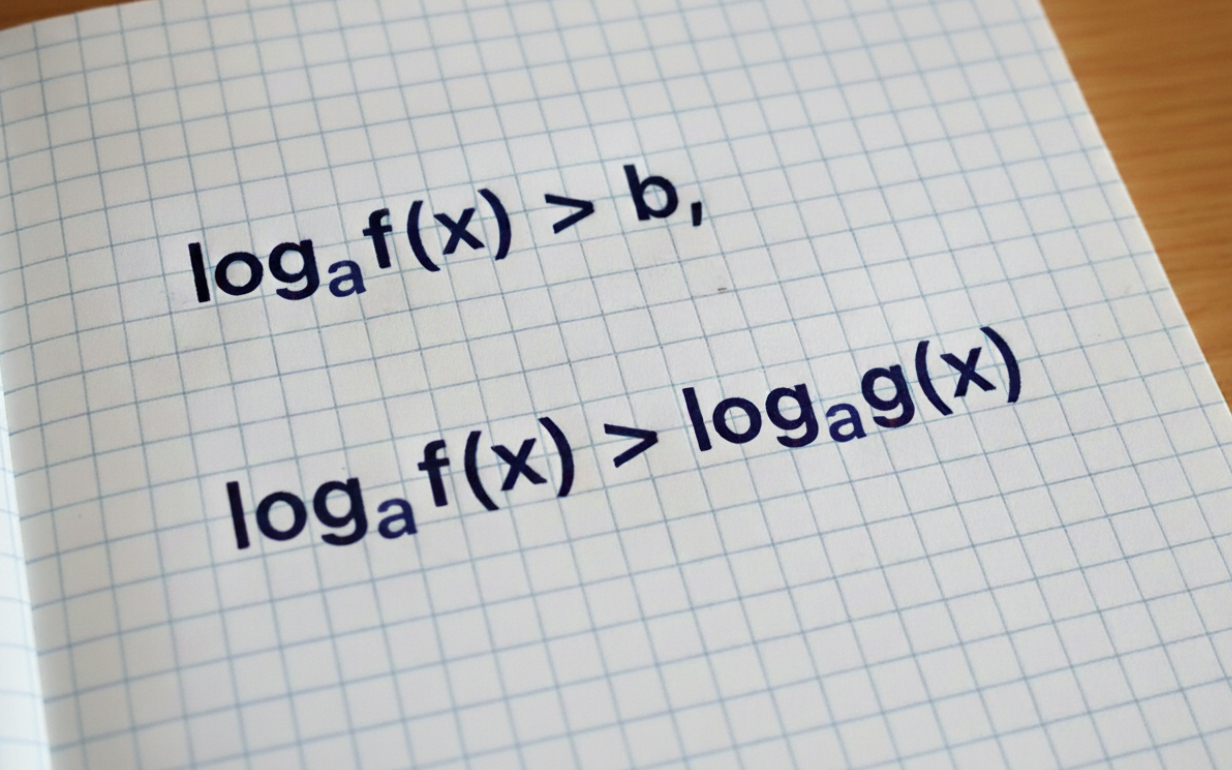 logₐf(x) > b,
logₐf(x) > logₐg(x)